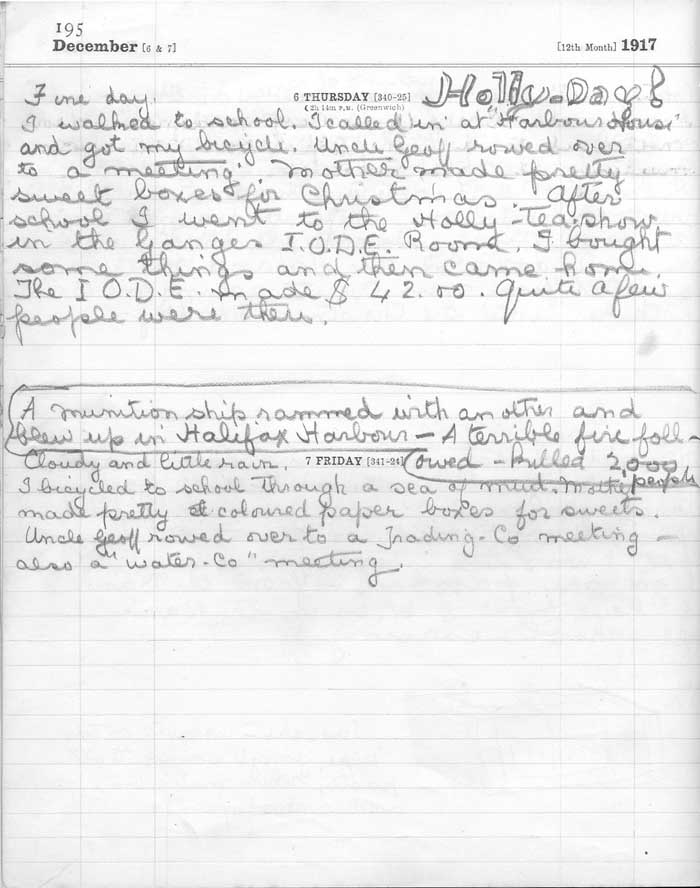 195
December [6 & 7] [12th Month] 1917
6 THURSDAY [340-25] Holly-Day!
( 2h 14m P.M. (Greenwich)
Fine day.
I walked to school. I called in at "Harbour House"
and got my bicycle. Uncle Geoff rowed over
to a meeting. Mother made pretty
sweet boxes for Christmas. After
school I went to the Holly-Tea-show
in the Ganges I.O.D.E. Room. I bought
some things and then came home.
The I O.D.E. made $ 42.00. Quite a few
people were there.
A munition ship rammed with another and
blew up in Halifax Harbour - A terrible fire foll-
owed - killed 2,000
people
7 FRIDAY [341-24]
Cloudy and little rain.
I bicycled to school through a sea of mud. Mother
made pretty coloured paper boxes for sweets.
Uncle Geoff rowed over to a Trading-Co meeting -
also a "water-Co" meeting.